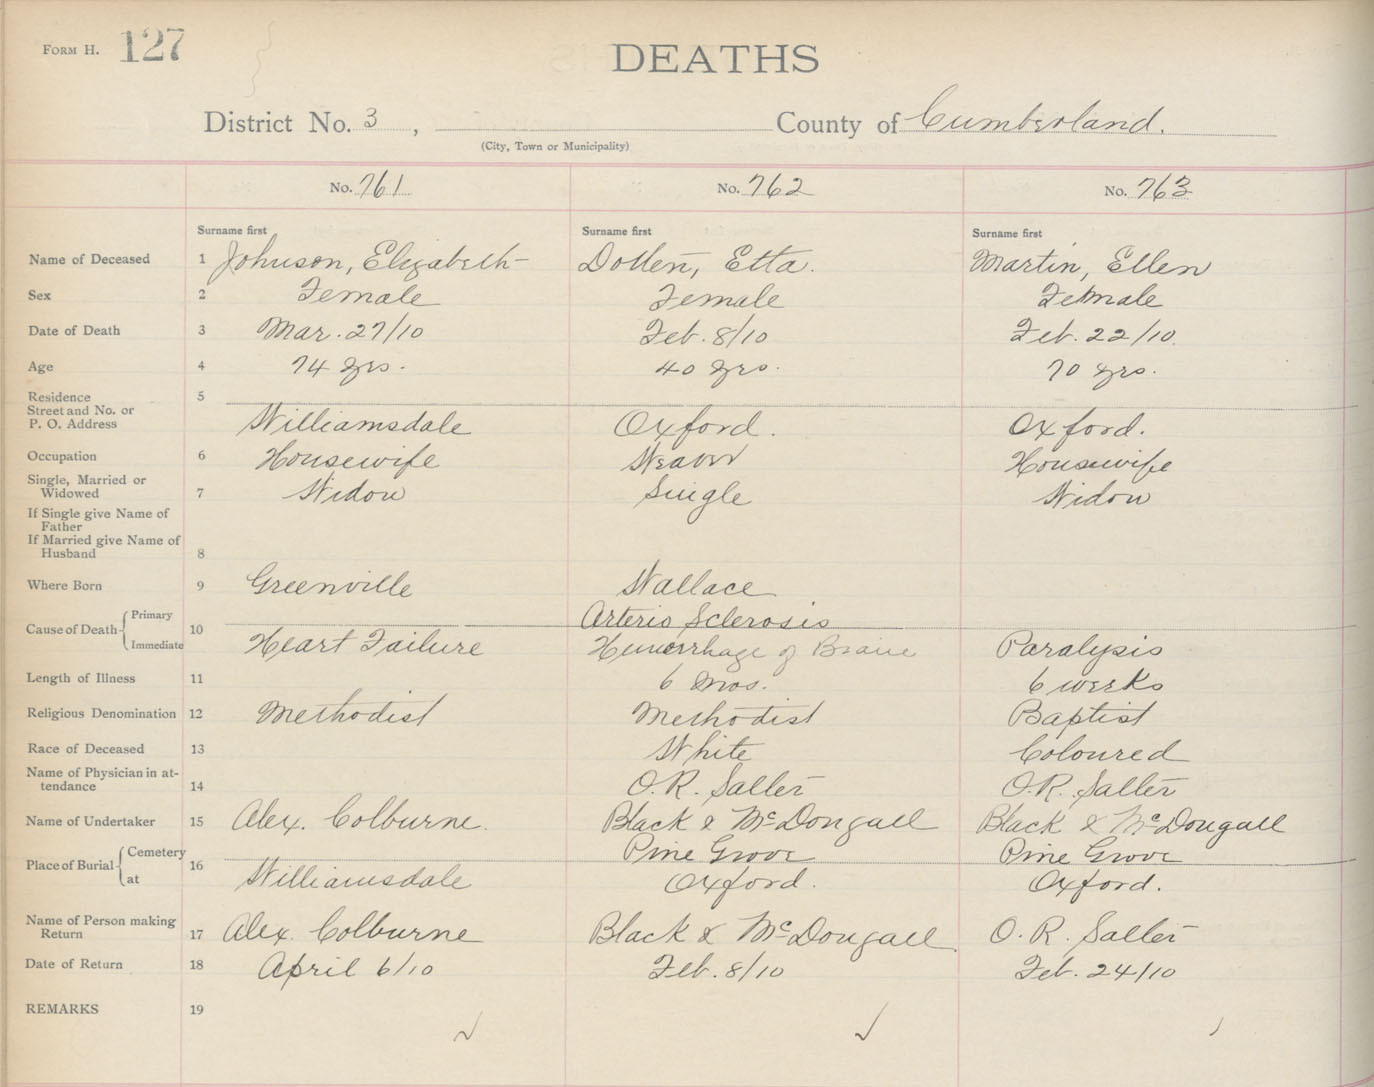 FORM H. 127
DEATHS
District No. 3 , County of Cumberland.
(City, Town or Municipality)
No. 761 No. 762 No. 763
Surname first Surname first Surname first
Name of Deceased 1 Johnson, Elizabeth Dotten, Etta. Martin, Ellen
Sex 2 Female Female Female
Date of Death 3 Mar. 27/10 Feb. 8/10 Feb. 22/10.
Age 4 74 yrs. 40 yrs. 70 yrs.
Residence 5
Street and No. or
P. O. Address Williamsdale Oxford. Oxford.
Occupation 6 Housewife Weaver Housewife
Single, Married or
Widowed 7 Widow Single Widow
If Single give Name of
Father
If Married give Name of
Husband 8
Where Born 9 Greenville Wallace
Cause of Death 10 Primary Arterio Sclerosis
Immediate Heart Failure Hemorrhage of Brain Paralysis
Length of Illness 11 6 Mos. 6 weeks
Religious Denomination 12 Methodist Methodist Baptist
Race of Deceased 13 White Coloured
Name of Physician in at-
tendance 14 O.R. Salter O.R. Salter
Name of Undertaker 15 Alex. Colburne. Black & McDougall Black & McDougall
Place of Burial 16 Cemetery Pine Grove Pine Grove
at Williamsdale Oxford. Oxford.
Name of Person making
Return 17 Alex. Colburne Black & McDougall O. R. Salter
Date of Return 18 April 6/10 Feb. 8/10 Feb. 24/10
REMARKS 19